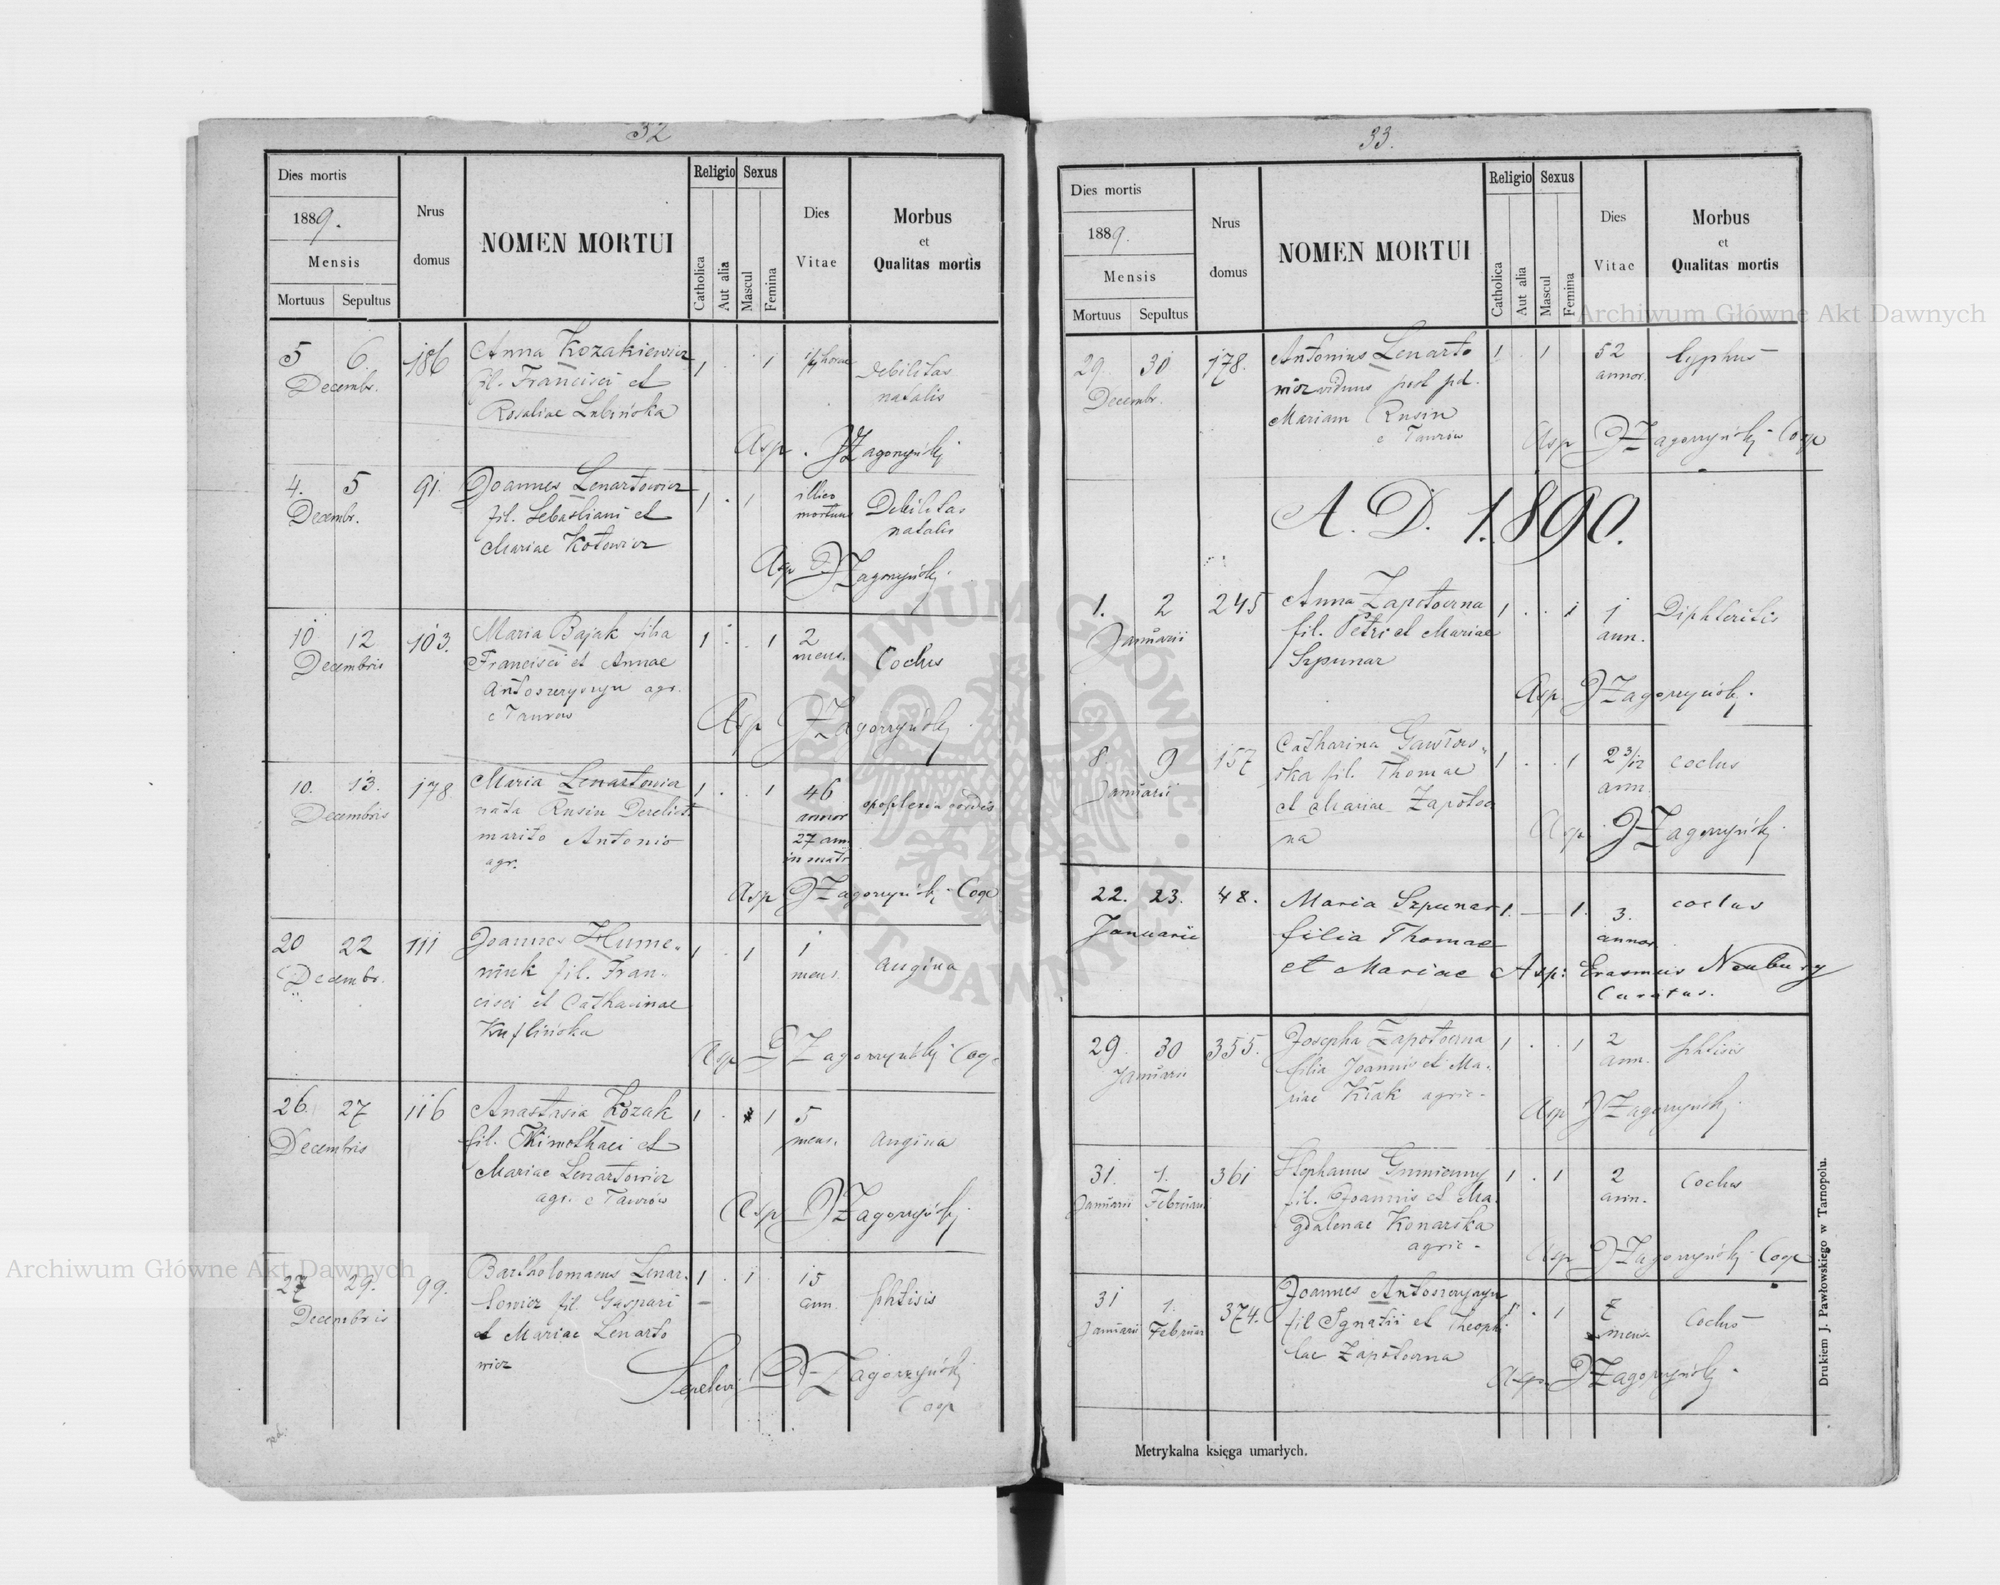 32
Dies mortis
1889.
Mensis
Mortuus Sepultus
Nrus domus
NOMEN MORTUI
Religio
Catholica
Aut alia
Sexus
Mascul
Femina
Dies Vitae
Morbus
et
Qualitas mortis
5 6. 186 Anna Kozakiewicz 1 . . 1 1/4 horae Debilitas
Decembr. fil. Francisci et natalis
Rosaliae Lubińska
Asp. Zagorzyński
4. 5 91. Joannes Lenartowicz 1 . 1 illico Debilitas
Decembr. fil. Sebastiani et mortuus natalis
Mariae Kotowicz
Asp Zagorzyński
10 12 103. Maria Bajak filia 1 . . 1 2 Coclus
Decembris Francisci et Annae mens.
Antoszczyszyn agr.
e Taurow
Asp Zagorzyński
10. 13. 178. Maria Lenartowicz 1 . . 1 46 apoplexia cordis
Decembris nata Rusin Derelict. annor
marito Antonio 27 ann
agr. in matr
Asp Zagorzyński Coop
20 22 111 Joannes Hume- 1 . 1 1 angina
Decembr. niuk fil. Fran- mens.
cisci et Catharinae
Kuflińska
Asp Zagorzyński Coop
26. 27 116 Anastasia Kozak 1 . 1 5 angina
Decembris fil. Thimothaei et mens.
Mariae Lenartowicz
agr. e Taurow
Asp Zagorzyński
27 29. 99. Bartholomaeus Lenar- 1 . 1 15 phtisis
Decembris towicz fil. Gaspari ann.
et Mariae Lenarto
wicz
Sepelevi Zagorzyński
Coop
33.
Dies mortis
1889.
Mensis
Mortuus Sepultus
Nrus domus
NOMEN MORTUI
Religio
Catholica
Aut alia
Sexus
Mascul
Femina
Dies Vitae
Morbus
et
Qualitas mortis
29. 30 178. Antonius Lenarto 1 1 52 typhus
Decembr. wicz viduus post pd. annor.
Mariam Rusin
e Taurow
Asp Zagorzyński Coop
A. D. 1890.
1. 2 245 Anna Zapotoczna 1 . . 1 1 Diphteritis
Januarii fil. Petri et Mariae ann.
Szpunar
Asp. Zagorzyński.
8 9 157 Catharina Gawłow- 1 . . 1 2 3/12 coclus
Januarii ska fil. Thomae ann.
et Mariae Zapotocz
na
Asp. Zagorzyński
22. 23. 48. Maria Szpunar 1. — 1. 3. coclus
Januarii filia Thomae annor.
et Mariae Asp: Erasmus Neuburg
Curatus.
29. 30 355. Josepha Zapotoczna 1 . . 1 2 phtisis
Januarii filia Joannis et Ma- ann.
riae Kłak agric-
Asp Zagorzyński
31. 1. 361 Stephanus Gumienny 1 . 1 2 Coclus
Januarii Februarii fil. Joannis et Ma- ann.
gdalenae Konarska
agric-
Asp Zagorzyński Coop
31 1. 374. Joannes Antoszczyszyn 1 . 1 7 Coclus
Januarii Februar fil Ignatii et Theoph mens.
lae Zapotoczna
Asp. Zagorzyński
Metrykalna księga umarłych.
Drukiem J. Pawłowskiego w Tarnopolu.
Archiwum Główne Akt Dawnych
Archiwum Główne Akt Dawnych
ARCHIWUM GŁÓWNE AKT DAWNYCH